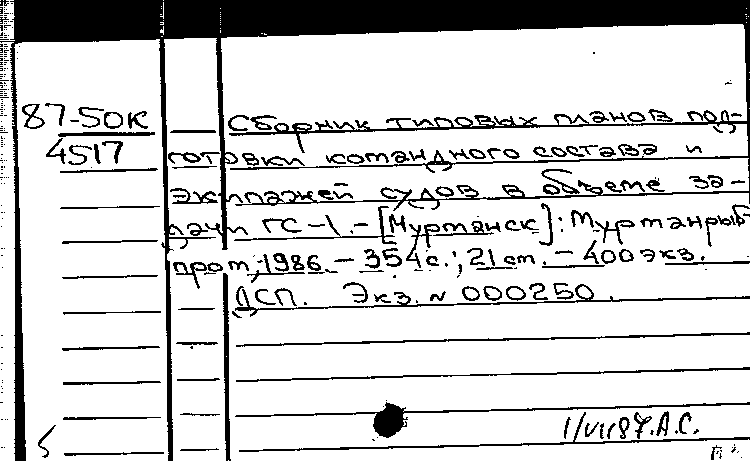 87-50К
4517
Сборник типовых планов под-
готовки командного состава и
экипажей судов в объеме за-
дачи ГС-1. - [Мурманск]: Мурманрыб-
пром, 1986. - 354 с.; 21 см. - 400 экз.
ДСП. Экз. N 000250.
1/VII87. А.С.